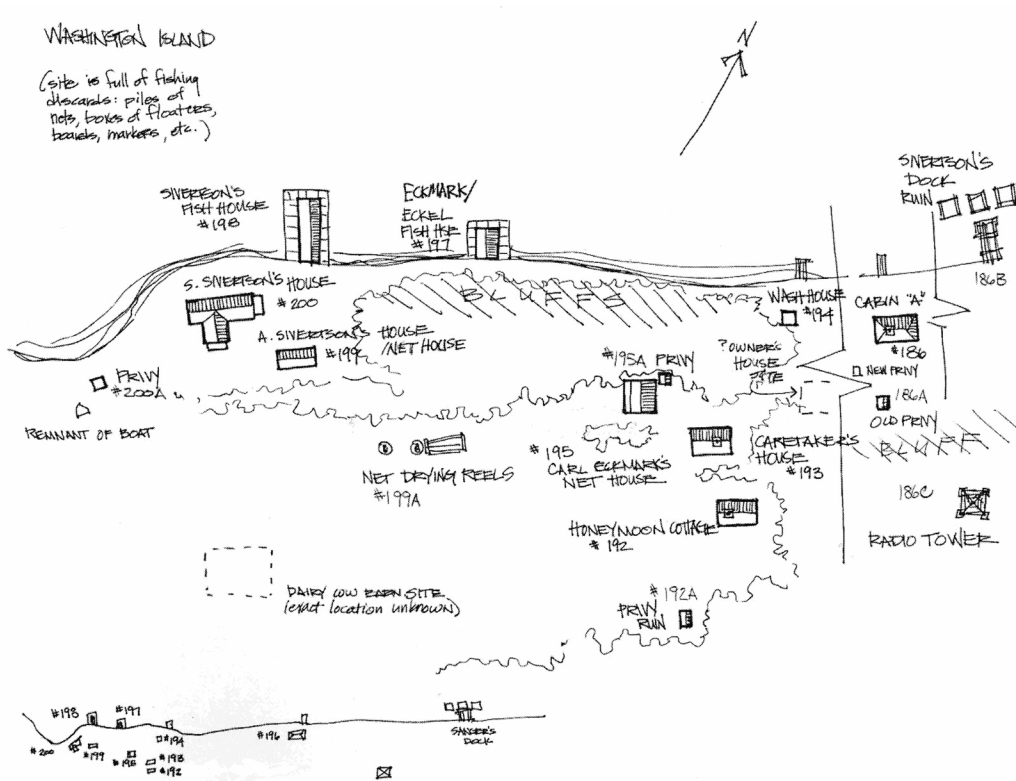 WASHINGTON ISLAND
(site is full of fishing
discards: piles of
nets, boxes of floaters,
boards, markers, etc.)
N
SIVERTSON'S
FISH HOUSE
#198
ECKMARK/
ECKEL
FISH HSE
#197
SIVERTSON'S
DOCK
RUIN
186B
S. SIVERTSON'S HOUSE
#200
BLUFFS
WASH HOUSE
#194
CABIN "A"
#186
A. SIVERTSON'S HOUSE
#199 /NET HOUSE
#195A PRIVY
? OWNER'S
HOUSE
SITE
NEW PRIVY
186A
OLD PRIVY
PRIVY
#200A
REMNANT OF BOAT
BLUFF
NET DRYING REELS
#199A
#195
CARL ECKMARK'S
NET HOUSE
CARETAKER'S
HOUSE
#193
186C
RADIO TOWER
HONEYMOON COTTAGE
#192
DAIRY COW BARN SITE
(exact location unknown)
#192A
PRIVY
RUIN
#198
#197
#200
#199
#195
#194
#193
#192
#196
DOCK